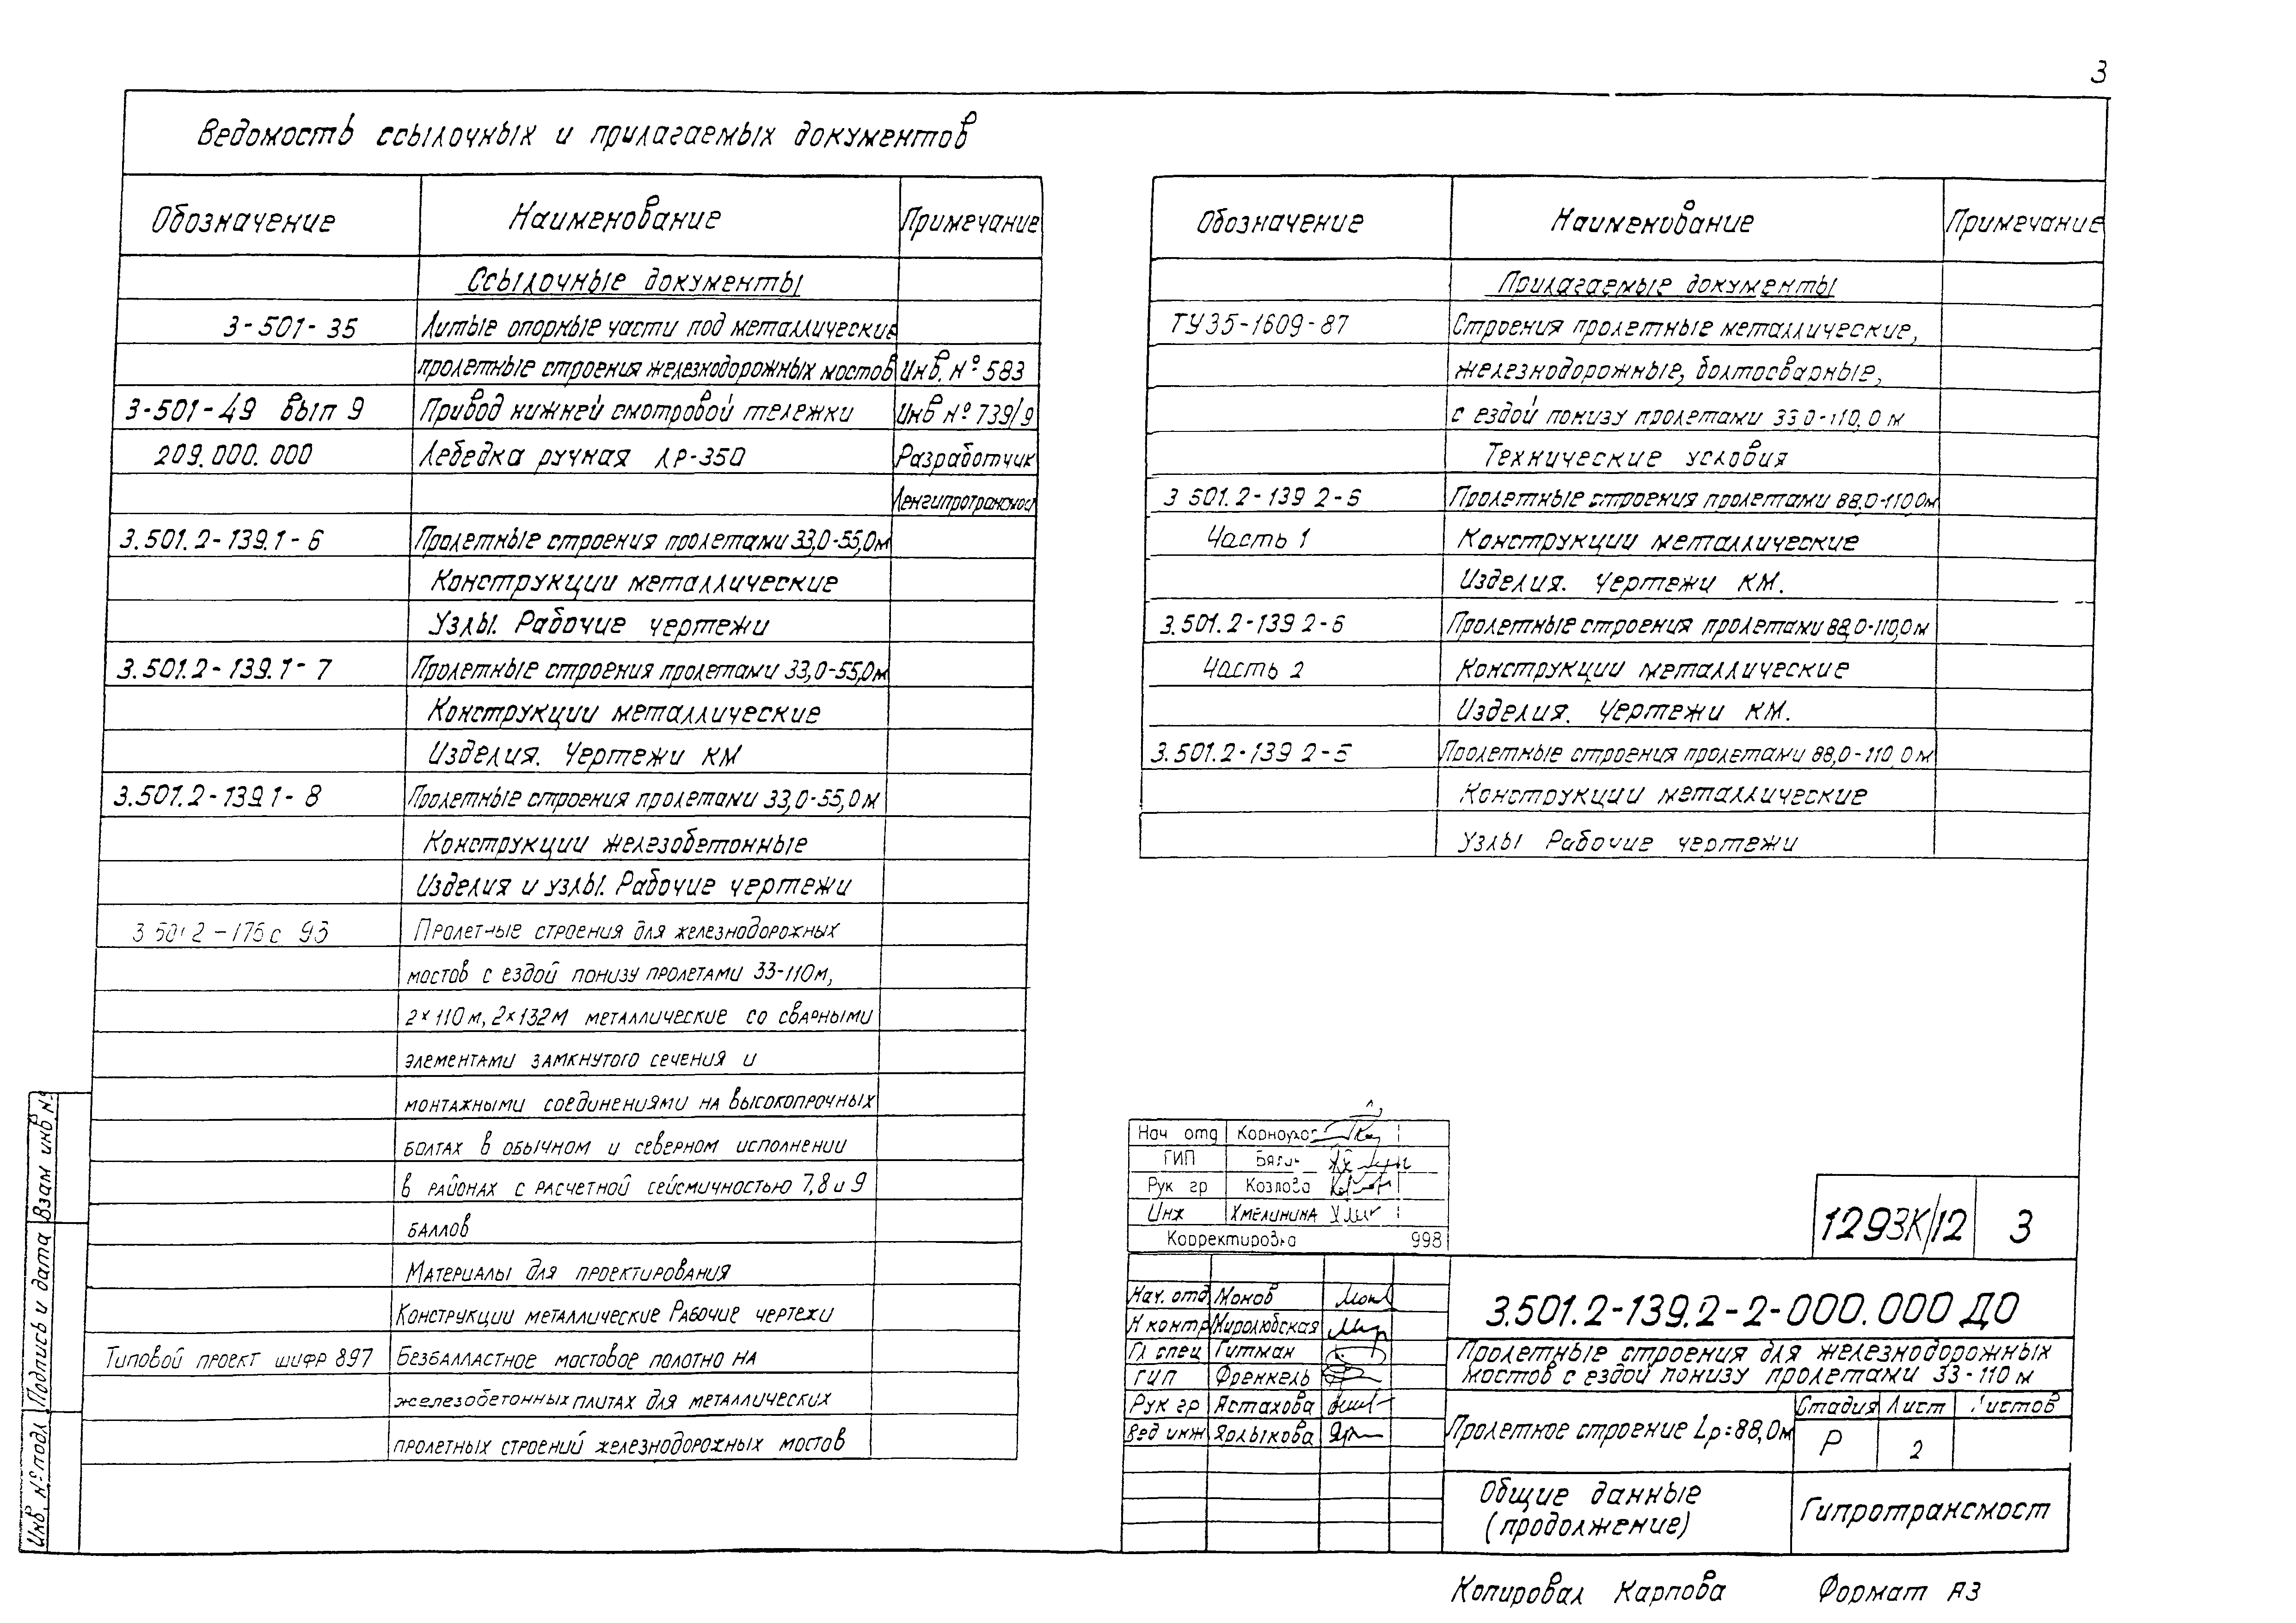 3
Ведомость ссылочных и прилагаемых документов
Обозначение Наименование Примечание
Ссылочные документы
3-501-35 Литые опорные части под металлические
пролетные строения железнодорожных мостов Инв. № 583
3-501-49 вып 9 Привод нижней смотровой тележки Инв № 739/9
209.000.000 Лебедка ручная ЛР-350 Разработчик
Ленгипротрансмост
3.501.2-139.1-6 Пролетные строения пролетами 33,0-55,0м
Конструкции металлические
Узлы. Рабочие чертежи
3.501.2-139.1-7 Пролетные строения пролетами 33,0-55,0м
Конструкции металлические
Изделия. Чертежи КМ
3.501.2-139.1-8 Пролетные строения пролетами 33,0-55,0м
Конструкции железобетонные
Изделия и узлы. Рабочие чертежи
Пролетные строения для железнодорожных
мостов с ездой понизу пролетами 33-110м,
2×110м, 2×132м металлические со сварными
элементами замкнутого сечения и
монтажными соединениями на высокопрочных
болтах в обычном и северном исполнении
в районах с расчетной сейсмичностью 7,8 и 9
баллов
Материалы для проектирования
Конструкции металлические Рабочие чертежи
Типовой проект шифр 897 Безбалластное мостовое полотно на
железобетонных плитах для металлических
пролетных строений железнодорожных мостов
Обозначение Наименование Примечание
Прилагаемые документы
ТУ35-1609-87 Строения пролетные металлические,
железнодорожные, болтосварные,
с ездой понизу пролетами 33 0-110,0 м
Технические условия
3 501.2-139 2-6 Пролетные строения пролетами 88,0-110,0м
Часть 1 Конструкции металлические
Изделия. Чертежи КМ.
3.501.2-139 2-6 Пролетные строения пролетами 88,0-110,0м
Часть 2 Конструкции металлические
Изделия. Чертежи КМ.
3.501.2-139 2-5 Пролетные строения пролетами 88,0-110,0м
Конструкции металлические
Узлы Рабочие чертежи
Нач отд
ГИП
Рук гр Козлова
Инж Хмелинина
Корректировка 998
1293К/12 3
Нач. отд Монов
Н контр Миролюбская
Гл спец Гитман
ГИП Френкель
Рук гр Астахова
Вед инж Ярлыкова
3.501.2-139.2-2-000.000 ДО
Пролетные строения для железнодорожных
мостов с ездой понизу пролетами 33-110м
Пролетное строение Lр=88,0м
Стадия Лист Листов
Р 2
Общие данные
(продолжение)
Гипротрансмост
Инв. № подл Подпись и дата Взам инв №
Копировал Карпова Формат А3